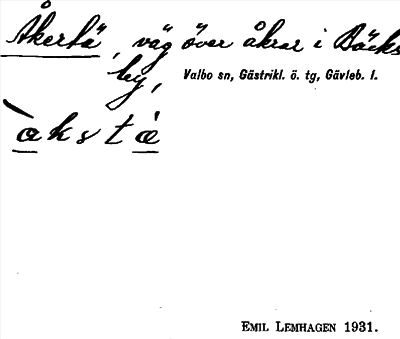 Åkertä, väg över åkrar i Bäcks
by,
Valbo sn, Gästrikl. ö. tg, Gävleb. l.
àkstà
EMIL LEMHAGEN 1931.